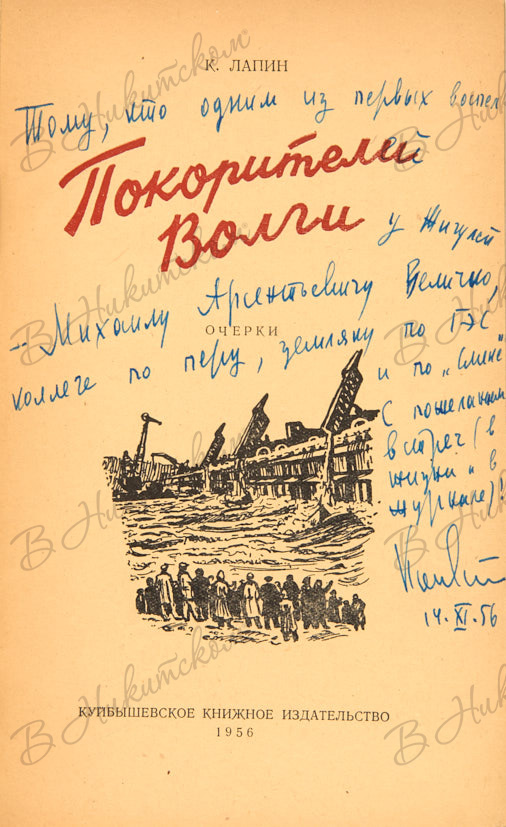 К. ЛАПИН
Тому, кто одним из первых воспел
Покорителей
Волги
у Жигулей
– Михаилу Арсентьевичу Величко,
ОЧЕРКИ
коллеге по перу, земляку по ГЭС
и по „Смене“
С пожеланием
встреч (в
жизни и в
журнале)!
14.XI.56
КУЙБЫШЕВСКОЕ КНИЖНОЕ ИЗДАТЕЛЬСТВО
1956
В Никитском